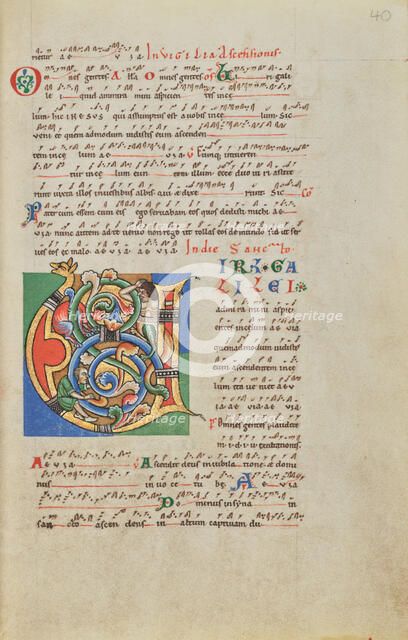 40
In vigilia Ascensionis
Omnes gentes A℣a O Omnes gentes Of Viri gali
lei quid ammiramini aspicientes in cę
lum hic IHESUS qui assumptus est a vobis in cę lum sic
veniet quem admodum vidistis eum ascenden
tem in cę lum aevia Cumq; intuerentur
in cę lum eun tem illum ecce duo viri astite
runt iuxta illos in vestibus albis qui et dixe runt Sic Co
Pater cum essem cum eis ego servabam eos quos dedisti michi ae
via nunc autem ad te venio non rogo ut tollas eos de mundo sed ut ser
ves eos a malo aevia aevia In die Sancto
VIRI GA
LILEI
admira mini aspici
entes in cęlum aevia
quemadmodum vidistis
eum ascendentem in cę
lum ita ve niet aevia
aevia aevia aevia
Omnes gentes plaudite
Aevia Ascendit deus in iubila tione et domi
nus in voce tu bę Aevia
Dominus in syna in
san cto ascen dens in altum captivam du
Heritage
Heritage
Heritage
Heritage
Heritage